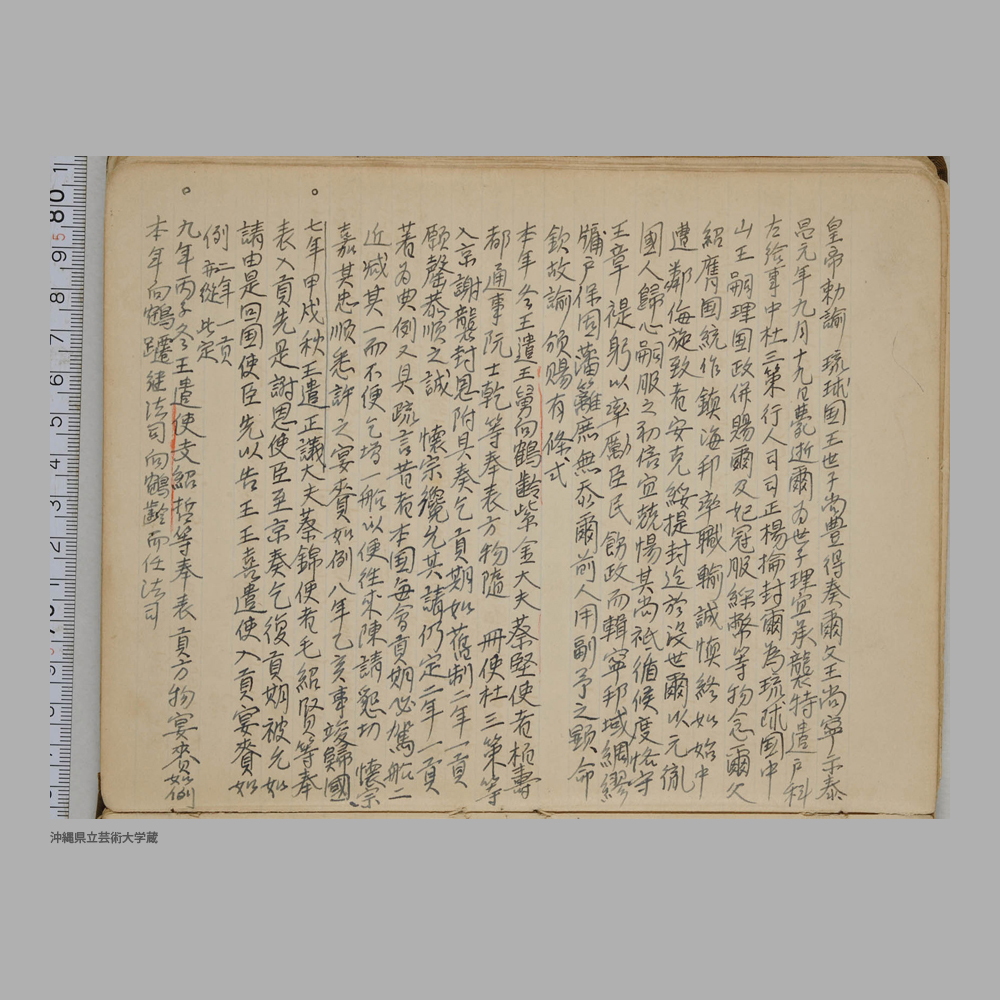 皇帝勅諭 琉球国王世子尚豊得奏爾父王尚寧示泰
昌元年九月十九日薨逝爾為世子理宜承襲特遣戸科
左給事中杜三策行人司司正楊掄封爾為琉球国中
山王嗣理国政併賜爾及妃冠服綵幣等物念爾父
紹膺国統作鎮海邦率職輸誠慎終如始中
遭鄰侮旋致者安克綏提封迄於没世爾以元胤
國人歸心嗣服之初倍宜兢惕其尚祗循候度恪守
王章禔躬以率勵臣民飭政而輯寧邦域綢繆
牖戸保固藩籬庶無忝爾前人用副予之顕命
欽故諭 頒賜有條式
本年冬王遣王舅向鶴齢紫金大夫蔡堅使者柏壽
都通事阮士乾等奉表方物隨 冊使杜三策等
入京謝襲封恩附具奏乞貢期如舊制二年一貢
願罄恭順之誠 懐宗纔允其請仍定二年一貢
著為典例又具疏言昔者本国毎會貢期必駕船二
近減其一而不便乞増一船以便往来陳請懇切 懐宗
嘉其忠順悉許之宴賚如例 八年乙亥事竣歸國
七年甲戌秋王遣正議大夫蔡錦使者毛紹賢等奉
表入貢先是謝恩使臣至京奏乞復貢期被允如
請由是回国使臣先以告王王喜遣使入貢宴賚如
例 二年一貢
従此定
九年丙子冬王遣使支紹哲等奉表貢方物宴賚如例
本年向鶴躔継法司向鶴齢而任法司
沖縄県立芸術大学蔵
1 80 5 9 8 7 6 5 4 3 2 1